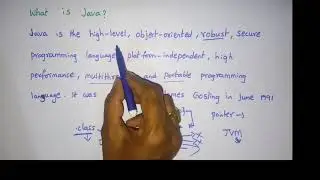 What is Java?
Java is the high-level, object-oriented, robust, secure
programming language, platform-independent, high
performance, multithre and portable programming
language. It was mes Gosling in June 1991
.class pointer→
JVM